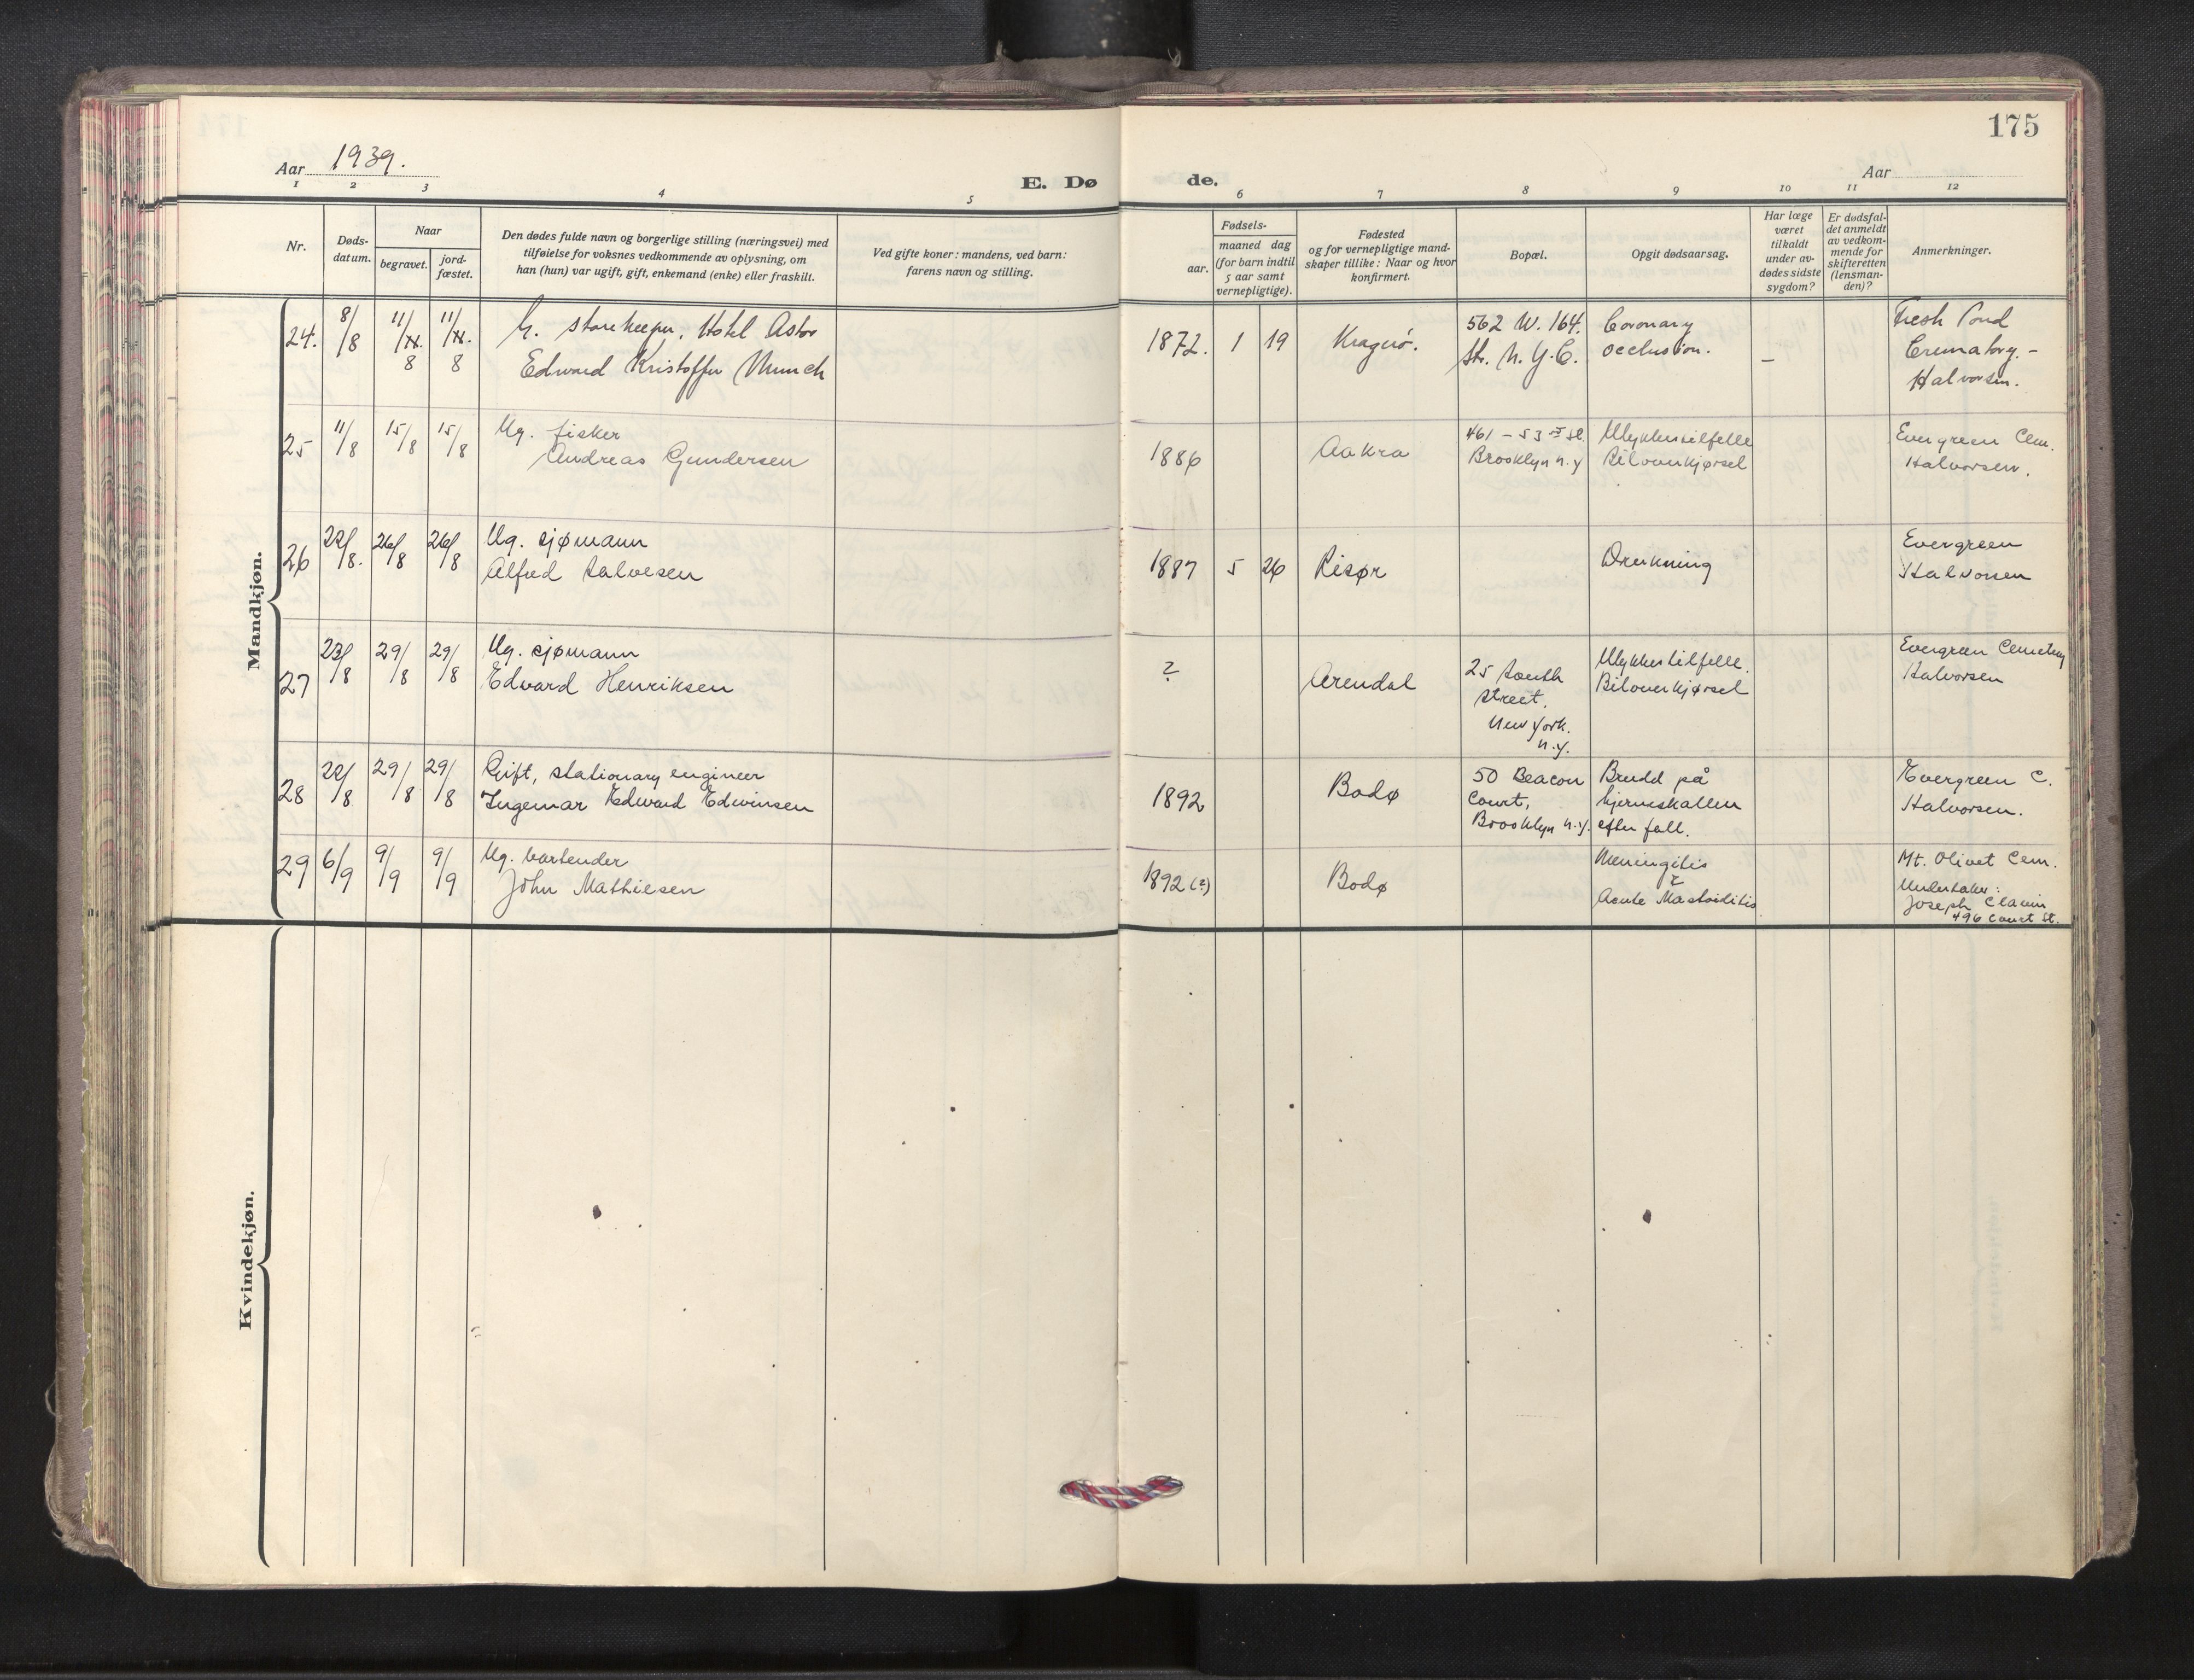 175
Aar 1939.
E. Dø de.
Aar
1 2 3 4 5 6 7 8 9 10 11 12
Nr.
Døds-
datum.
Naar
begravet.
jord-
fæstet.
Den dødes fulde navn og borgerlige stilling (næringsvei) med
tilføielse for voksnes vedkommende av oplysning, om
han (hun) var ugift, gift, enkemand (enke) eller fraskilt.
Ved gifte koner: mandens, ved barn:
farens navn og stilling.
Fødsels-
aar.
maaned dag
(for barn indtil
5 aar samt
vernepligtige).
Fødested
og for vernepligtige mand-
skaper tillike: Naar og hvor
konfirmert.
Bopæl.
Opgit dødsaarsag.
Har læge
været
tilkaldt
under av-
dødes sidste
sygdom?
Er dødsfal-
det anmeldt
av vedkom-
mende for
skifteretten
(lensman-
den)?
Anmerkninger.
Mandkjøn.
24. 8/8 11/8 11/8
storekeeper, Hotel Astor
Edward Kristoffer Munch
1872. 1 19
Kragerö.
562 W. 164.
Str. N.Y.C.
Coronary
occlusion.
–
Fresh Pond
Crematory. -
Halvorsen.
25 11/8 15/8 15/8
Ug. fisker
Andreas Gundersen
1886
Aakra
461 - 53 St.
Brooklyn N.Y
Ulykkestilfelle
Biloverkjørsel
Evergreen Cem.
Halvorsen.
26 22/8. 26/8 26/8
Ug. sjømann
Alfred Salvesen
1887 5 26
Risør
Drukning
Evergreen
Halvorsen
27 23/8 29/8 29/8
Ug. sjømann
Edvard Henriksen
?
Arendal
25 South
Street.
New York.
N.Y.
Ulykkestilfelle.
Biloverkjørsel
Evergreen Cemetery
Halvorsen
28 22/8 29/8 29/8
Gift, stationary engineer
Ingemar Edward Edwinsen
1892
Bodø
50 Beacon
Court,
Brooklyn N.Y.
Brudd på
hjerneskallen
efter fall.
Evergreen C.
Halvorsen.
29 6/9 9/9 9/9
Ug. bartender
John Mathiesen
1892 (?)
Bodø
Meningitis
Acute Mastoiditis
Mt. Olivet Cem.
Undertaker:
Joseph
496 Court St.
Kvindekjøn.